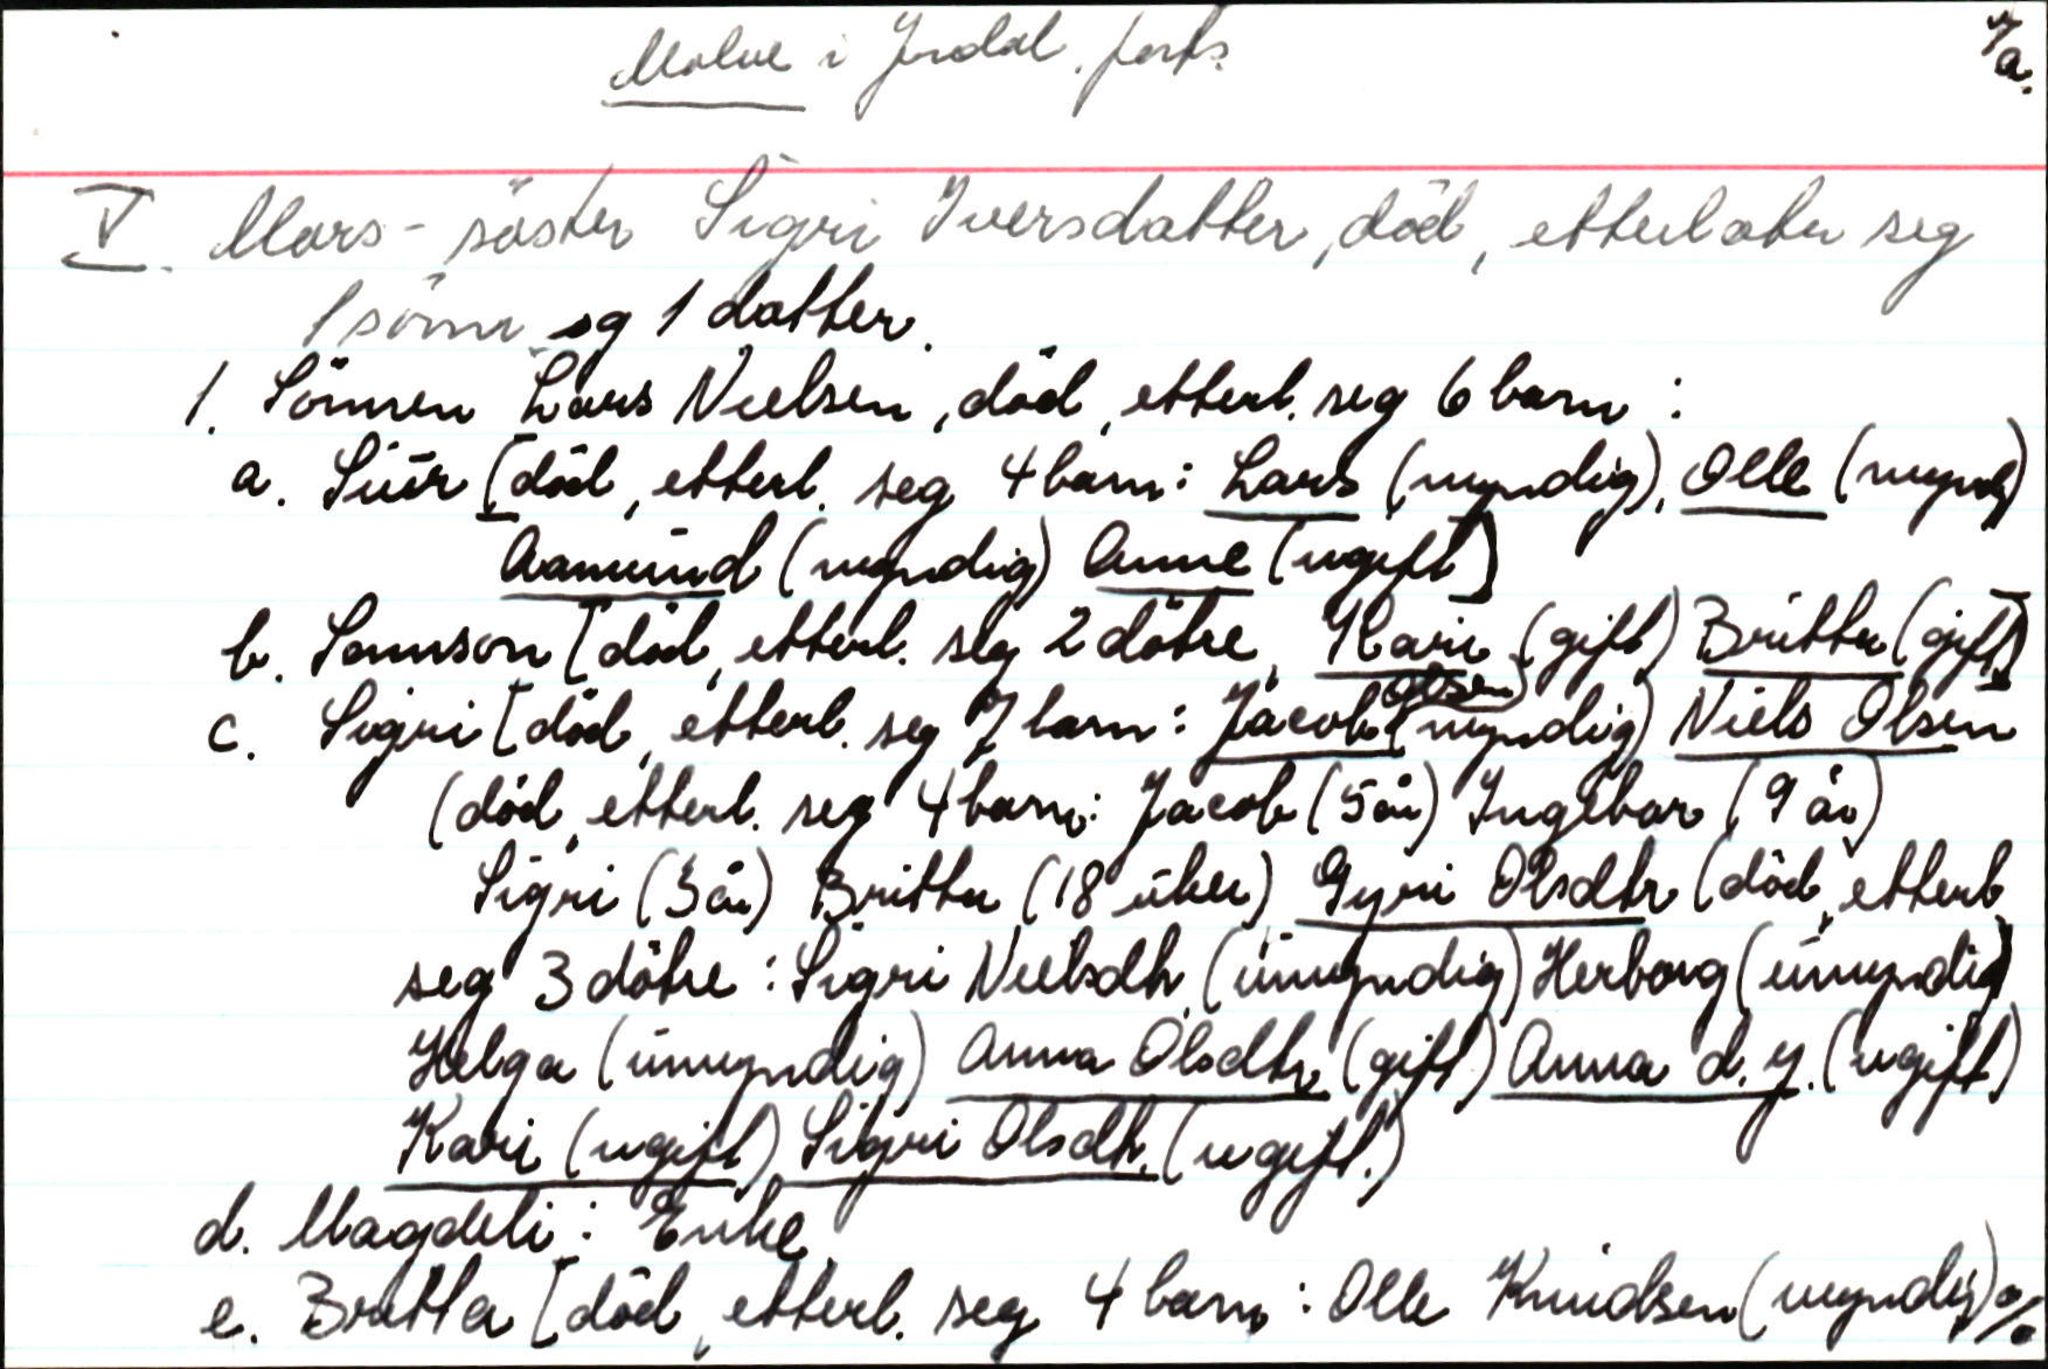 Molve i Jordal. forts.
7/a.
V. Mors-søster Sigri Iversdatter, död, etterlater seg
1 sönn og 1 datter.
1. Sönnen Lars Nielsen, död, etterl. seg 6 barn:
a. Siür [död, etterl. seg 4 barn: Lars (myndig), Olle (mynd)
Aamund (myndig) Anne (ugift)]
b. Samson [död, etterl. seg 2 dötre, Kari (gift) Britta (gift)]
c. Sigri [död, etterl. seg 7 barn: Jacob Olsen (myndig) Niels Olsen
(död, etterl. seg 4 barn: Jacob (5 år) Ingebor (9 år)
Sigri (3 år) Britta (18 uker) Gyri Olsdtr (död, etterl
seg 3 dötre: Sigri Nielsdtr. (umyndig) Herborg (umyndig)
Helga (umyndig) Anna Olsdtr. (gift) Anna d.y. (ugift)
Kari (ugift) Sigri Olsdtr. (ugift.)
d. Magdeli: Enke
e. Britta [död, etterl. seg 4 barn: Olle Knudsen (myndig) %